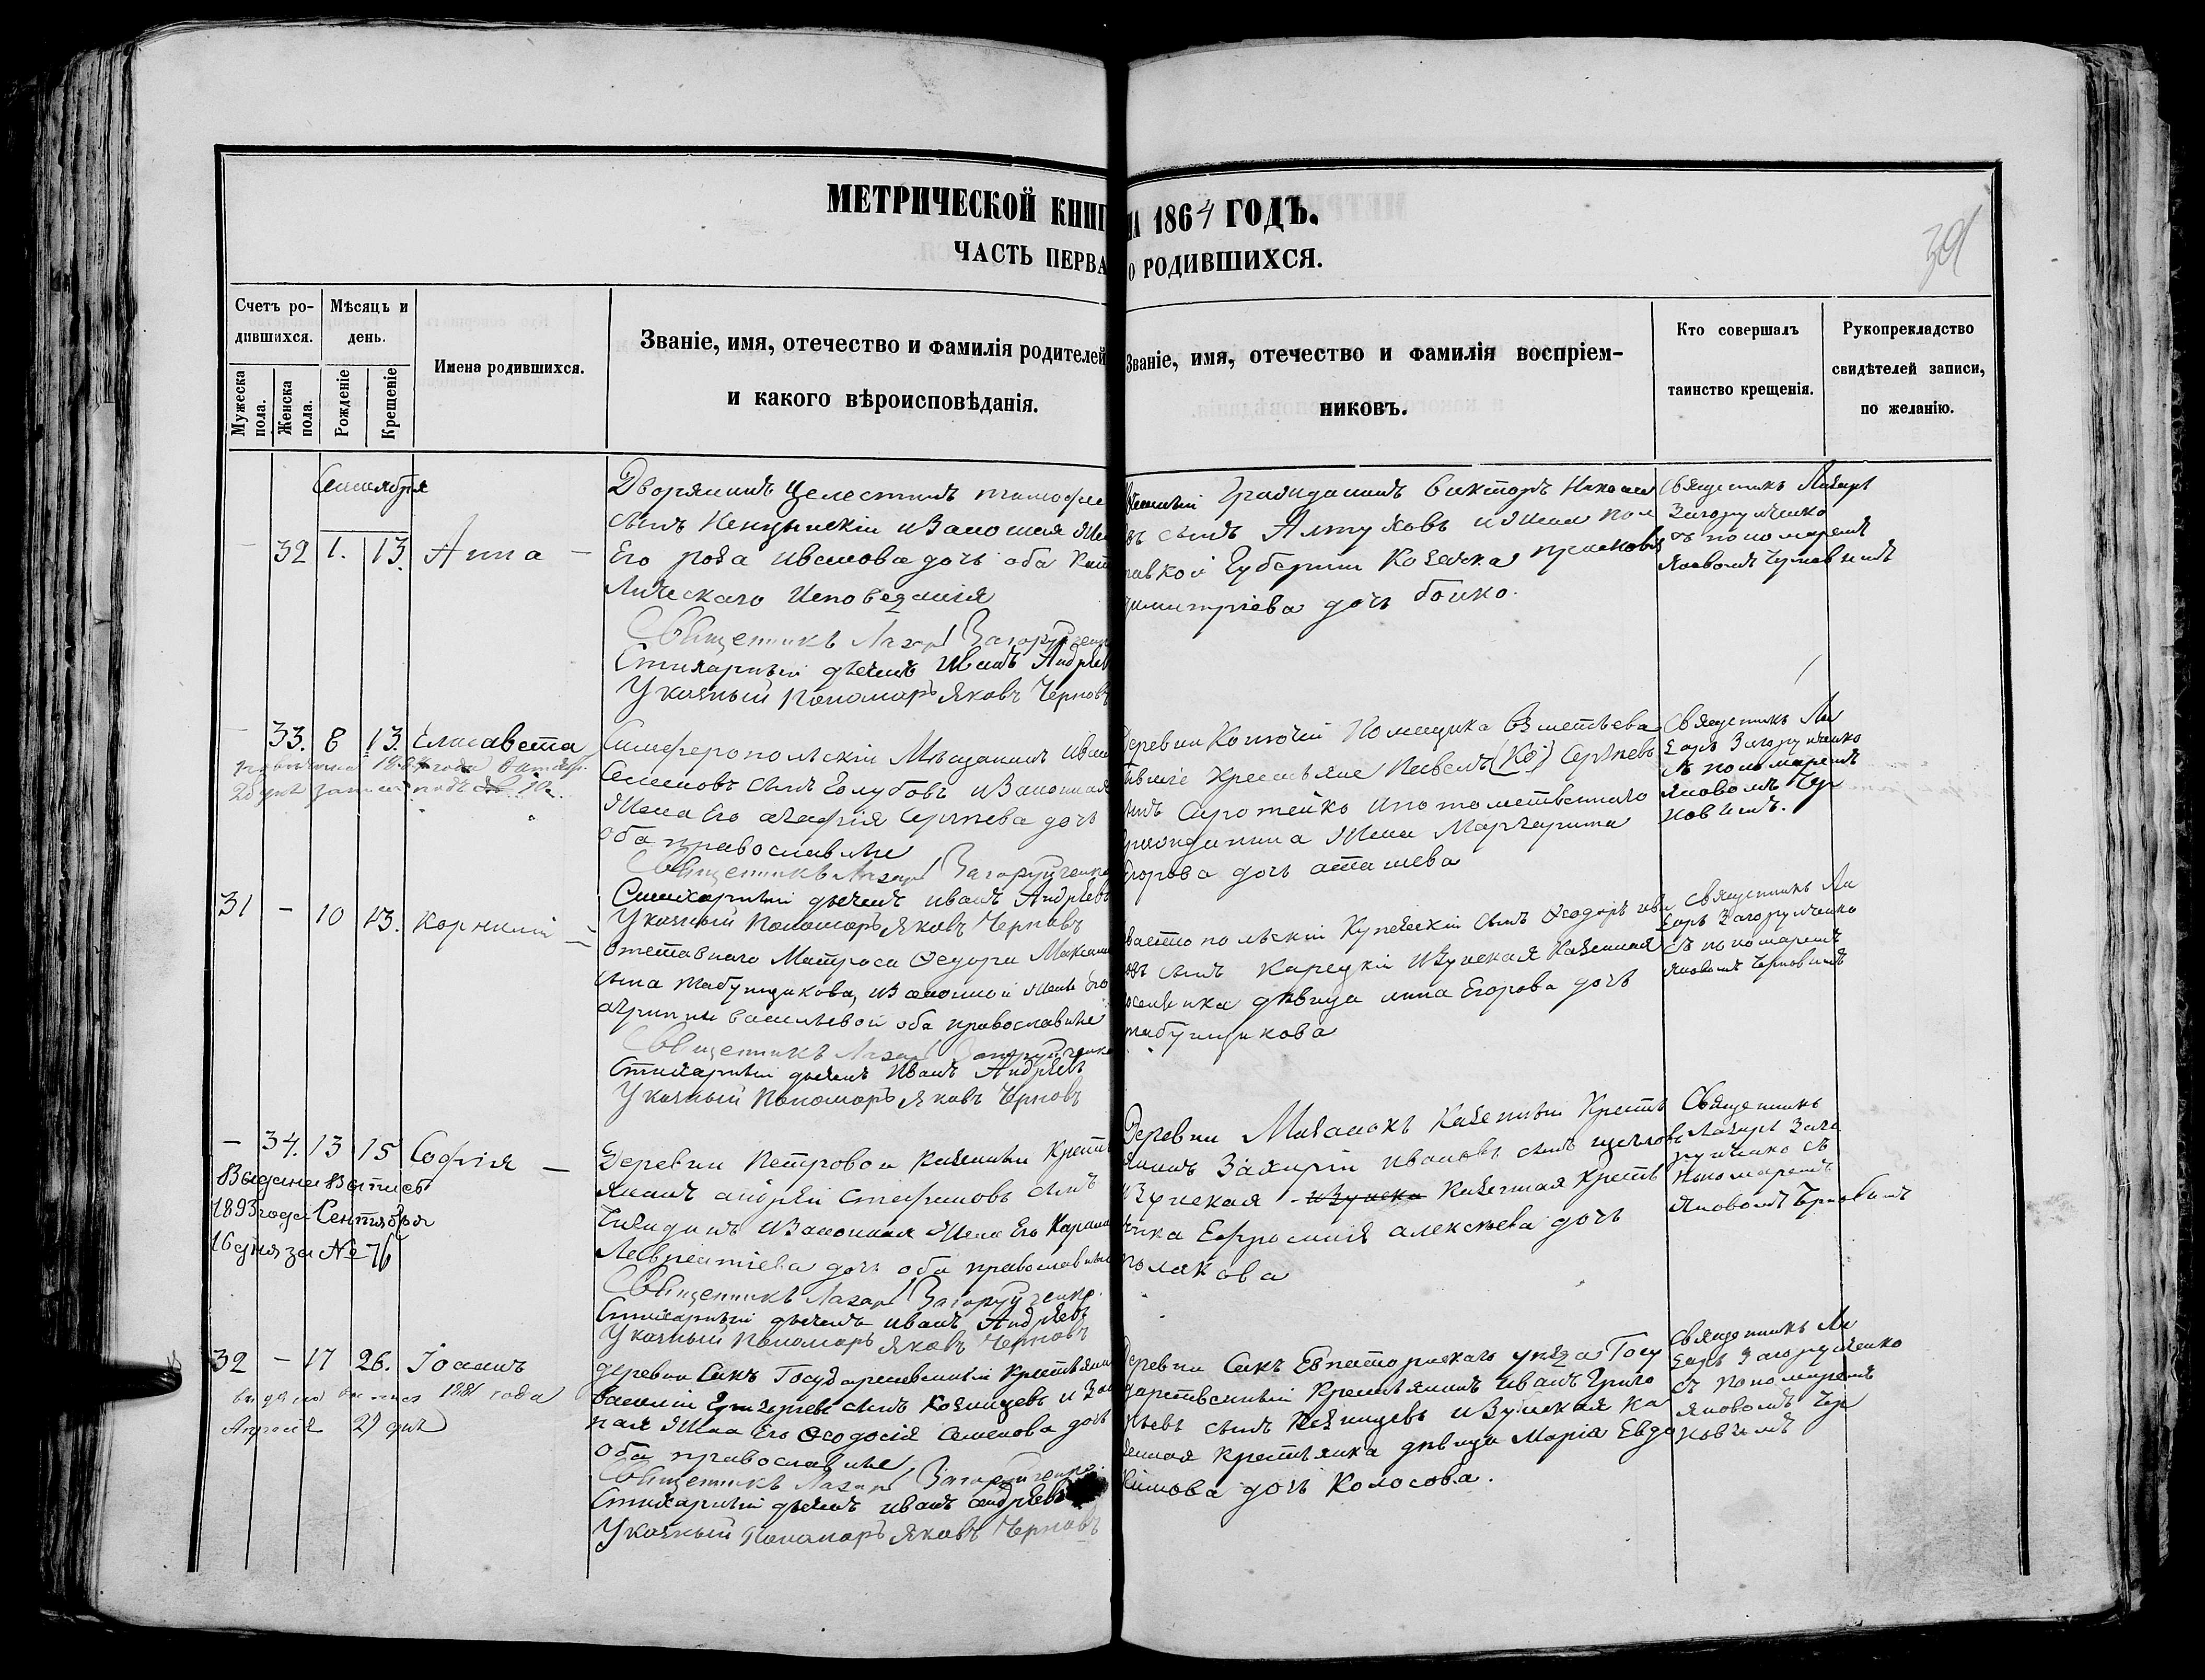 МЕТРИЧЕСКОЙ КНИГ
НА 1864 ГОДЪ.
ЧАСТЬ ПЕРВА
О РОДИВШИХСЯ.
39
Счетъ ро-
дившихся.
Мужеска
пола.
Женска
пола.
Мѣсяцъ и
день.
Рожденіе
Крещеніе
Имена родившихся.
Званіе, имя, отечество и фамилія родителей
и какого вѣроисповѣданія.
Званіе, имя, отечество и фамилія воспріем-
никовъ.
Кто совершалъ
таинство крещенія.
Рукоприкладство
свидѣтелей записи,
по желанію.
Сентября
- 32 1. 13. Анна -
Дворянинъ Целестинъ
сынъ и законная
Его Роза Иванова дочь оба Кат
лическаго исповеданія
Священникъ Лазарь Загоруйченко
Стихарный дьячекъ Иванъ Андрѣев
Указный Пономарь Яковъ Черновъ
Гражданинъ Викторъ Никола
въ сынъ Алтуховъ и Пол
тавкой Губерніи Козачка Прасковья
Димитріева дочь Бойко.
Священникъ Лазарь
Загоруйченко
съ пономаремъ
Яковомъ Черновымъ
- 33. 8 13. Елисавета
1864 года
Симферопольскій Мѣщанинъ Иван
Семеновъ сынъ Голубовъ и законная
Жена Его Агафія Сергѣева дочь
оба православные
Священникъ Лазарь Загоруйченко
Стихарный дьячекъ Иванъ Андрѣевъ
Указный Пономарь Яковъ Черновъ
Деревни Помещика
крестьяне Сергѣевъ
сынъ Сиротенко и потомственнаго
гражданина Жена Маргарита
Егорова дочь
Священникъ Ла
зарь Загоруйченко
съ пономаремъ
Яковомъ Чер
новымъ.
31 - 10 13. Корнилій -
отставнаго Матроса Ѳедора Максим
сына Табунщикова, и законной Жены Его
Агрипины Васильевой оба православные
Священникъ Лазарь Загоруйченко
Стихарный дьячекъ Иванъ Андрѣевъ
Указный Пономарь Яковъ Черновъ
вастопольскій Купеческій сынъ Ѳеодоръ Ива
овъ сынъ Карецкій и Зуйская Казенная
поселянка дѣвица Анна Егорова дочь
Табунщикова
Священникъ Ла
зарь Загоруйченко
съ пономаремъ
Яковомъ Черновымъ
- 34. 13 15 Софія -
Выдана Выпись
1893 года Сентября
16 дня за № 76
Деревни Петровой Казенный Кресть
янинъ Андрей Стефановъ сынъ
и законная Жена Его
Лаврентіева дочь оба православные
Священникъ Лазарь Загоруйченко.
Стихарный дьячекъ Иванъ Андрѣевъ
Указный Пономарь Яковъ Черновъ
Деревни Мазанокъ Казенный Кресть
янинъ Захарій Ивановъ сынъ
Зуйская Казенная Кресть
янка Ефросинія Алексѣева дочь
Полякова
Священникъ
Лазарь Заго
руйченко съ
пономаремъ
Яковомъ Черновымъ
32 - 17 26. Іоаннъ
выдана выпись 1881 года
Апреля 21 дня
деревни Сакъ Государственный Крестьянинъ
Василій Григорьевъ сынъ Казанцевъ и Зак
ная Жена Его Ѳеодосія Семенова дочь
оба православные
Священникъ Лазарь Загоруйченко.
Стихарный дьячекъ Иванъ Андрѣевъ
Указный Пономарь Яковъ Черновъ
Деревни Сакъ Евпаторискаго уѣзда Госу
дарственный Крестьянинъ Иванъ Григо
рьевъ сынъ Казанцевъ и Зуйская Ка
зенная Крестьянка дѣвица Марія Евдо
кимова дочь Колосова.
Священникъ Ла
зарь Загоруйченко
съ пономаремъ
Яковомъ Чер
новымъ